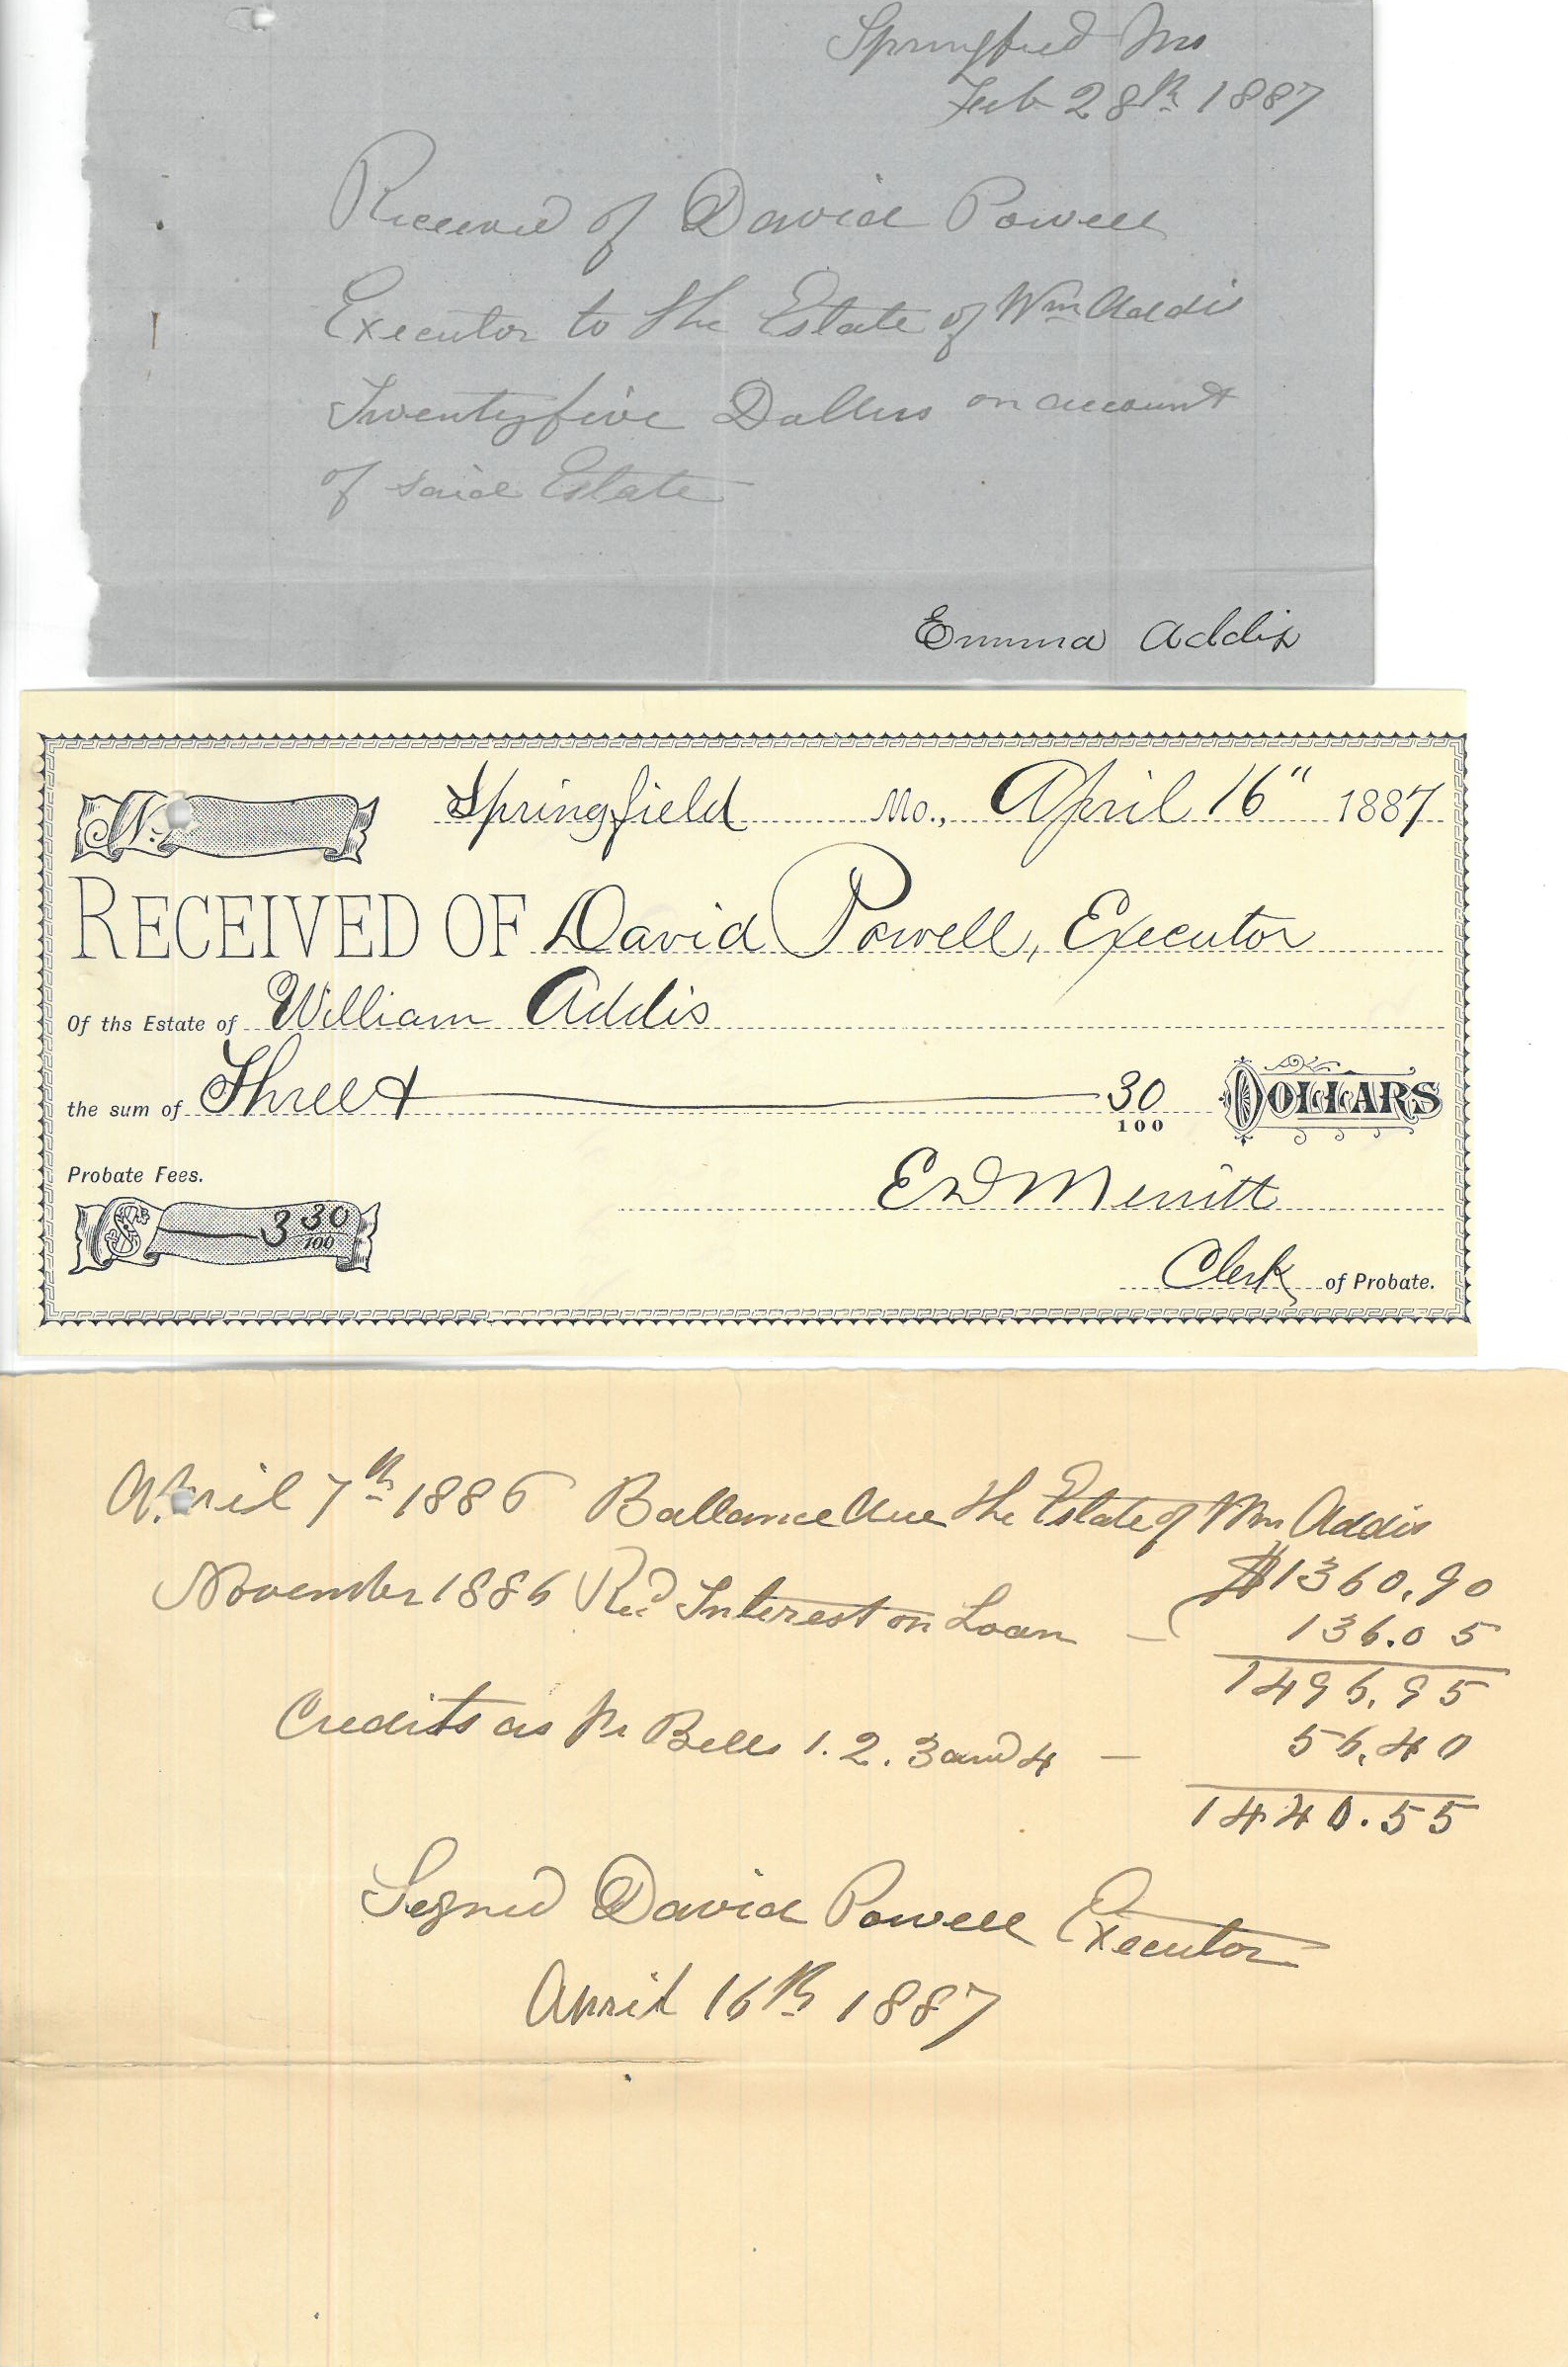 Springfied Mo
Feb 28th 1887
Received of David Powell
Executor to the Estate of Wm Addis
Twentyfive Dollers on account
of said Estate
Emma Addis
No. Springfield Mo., April 16" 1887
RECEIVED OF David Powell, Executor
Of ths Estate of William Addis
the sum of Three & 30/100 DOLLARS
Probate Fees.
E D Merritt
$ 3 30/100
Clerk of Probate.
April 7th 1886 Ballance due the Estate of Wm Addis
$1360.90
November 1886 Recd Interest on Loan — 136.05
1496.95
Credits as pr Bells 1. 2. 3 and 4 — 56.40
1440.55
Segned David Powell Executor
April 16th 1887